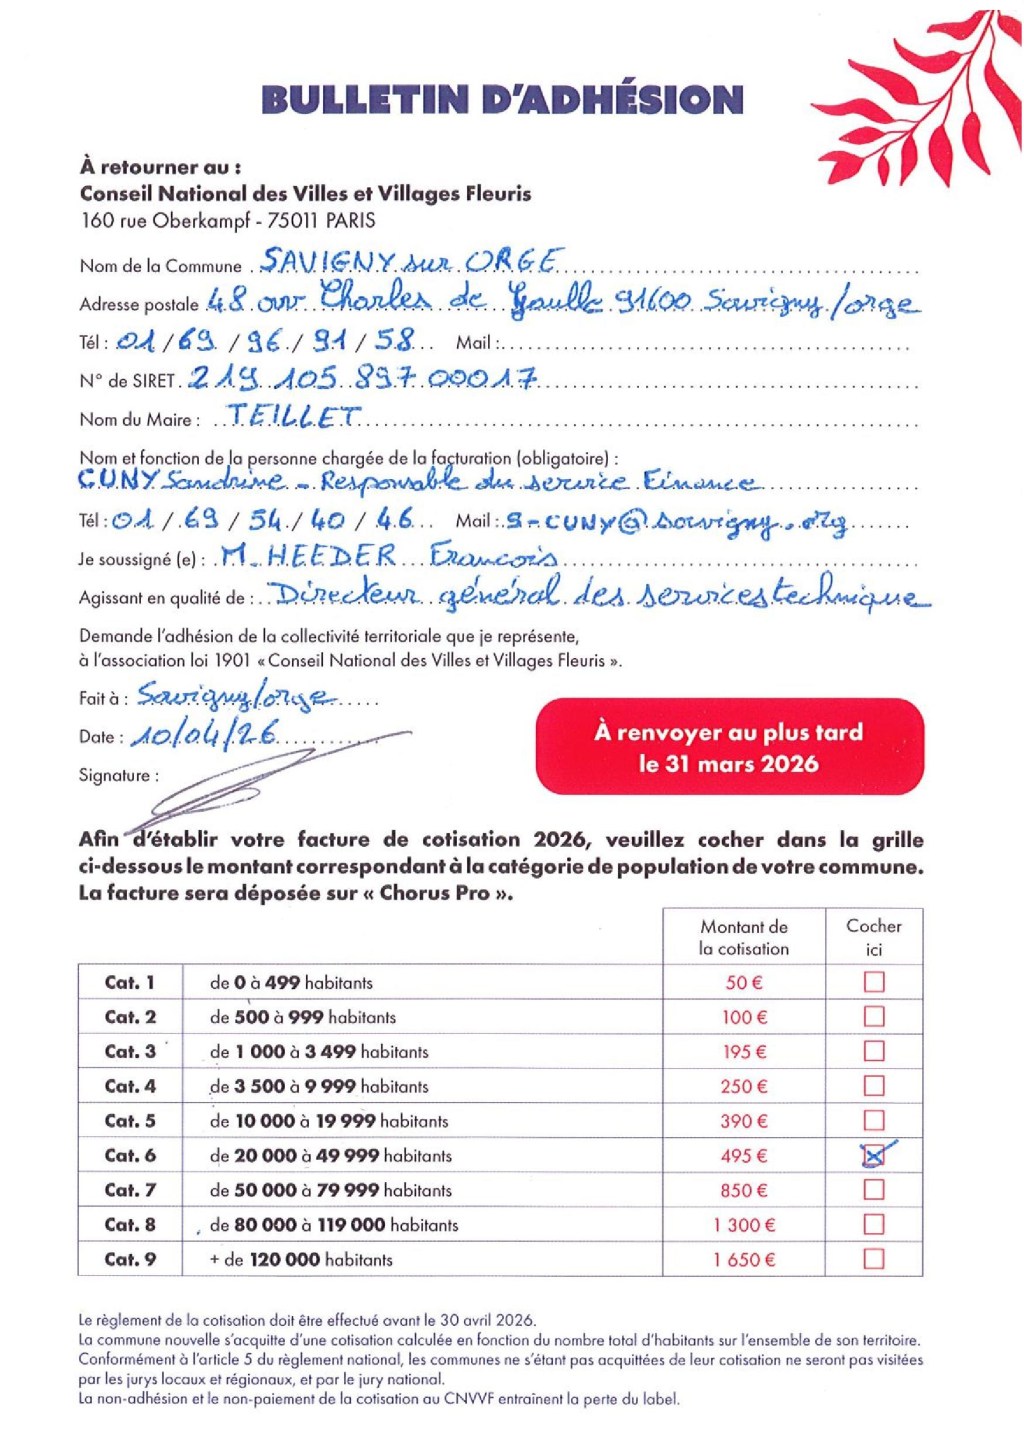 BULLETIN D'ADHÉSION
À retourner au :
Conseil National des Villes et Villages Fleuris
160 rue Oberkampf - 75011 PARIS
Nom de la Commune . SAVIGNY sur ORGE
Adresse postale 48 avr Charles de Gaulle 91600 Savigny/orge
Tél : 01/69/96/91/58 Mail :
N° de SIRET. 219 105 897 00017
Nom du Maire : TEILLET
Nom et fonction de la personne chargée de la facturation (obligatoire) :
CUNY Sandrine - Responsable du service Finance
Tél : 01/69/54/40/46 Mail : S-CUNY@savigny.org
Je soussigné (e) : M. HEEDER Francois
Agissant en qualité de : Directeur général des services technique
Demande l'adhésion de la collectivité territoriale que je représente,
à l'association loi 1901 « Conseil National des Villes et Villages Fleuris ».
Fait à : Savigny/orge
Date : 10/04/26
À renvoyer au plus tard
le 31 mars 2026
Signature :
Afin d'établir votre facture de cotisation 2026, veuillez cocher dans la grille
ci-dessous le montant correspondant à la catégorie de population de votre commune.
La facture sera déposée sur « Chorus Pro ».
Montant de la cotisation Cocher ici
Cat. 1 de 0 à 499 habitants 50 €
Cat. 2 de 500 à 999 habitants 100 €
Cat. 3 de 1 000 à 3 499 habitants 195 €
Cat. 4 de 3 500 à 9 999 habitants 250 €
Cat. 5 de 10 000 à 19 999 habitants 390 €
Cat. 6 de 20 000 à 49 999 habitants 495 €
Cat. 7 de 50 000 à 79 999 habitants 850 €
Cat. 8 de 80 000 à 119 000 habitants 1 300 €
Cat. 9 + de 120 000 habitants 1 650 €
Le règlement de la cotisation doit être effectué avant le 30 avril 2026.
La commune nouvelle s'acquitte d'une cotisation calculée en fonction du nombre total d'habitants sur l'ensemble de son territoire.
Conformément à l'article 5 du règlement national, les communes ne s'étant pas acquittées de leur cotisation ne seront pas visitées
par les jurys locaux et régionaux, et par le jury national.
La non-adhésion et le non-paiement de la cotisation au CNVVF entraînent la perte du label.